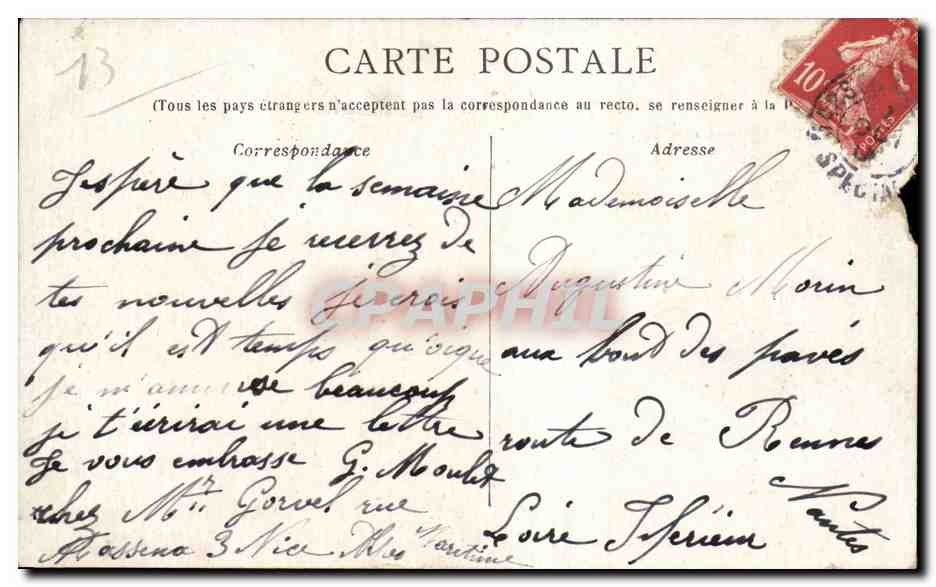 13
CARTE POSTALE
(Tous les pays étrangers n'acceptent pas la correspondance au recto, se renseigner à la P
Correspondance
J'espère que la semaine
prochaine je recerrez de
tes nouvelles je crois
qu'il est temps qu'oique
je m'amuse beaucoup
je t'écrirai une lettre
Je vous embrasse G. Moulet
chez Mr Gorvel rue
Massena 3 Nice Alpes Maritime
Adresse
Mademoiselle
Augustine Morin
aux bout des pavés
route de Rennes
Nantes
Loire Iférieur
10
POSTES
CPAPHIL